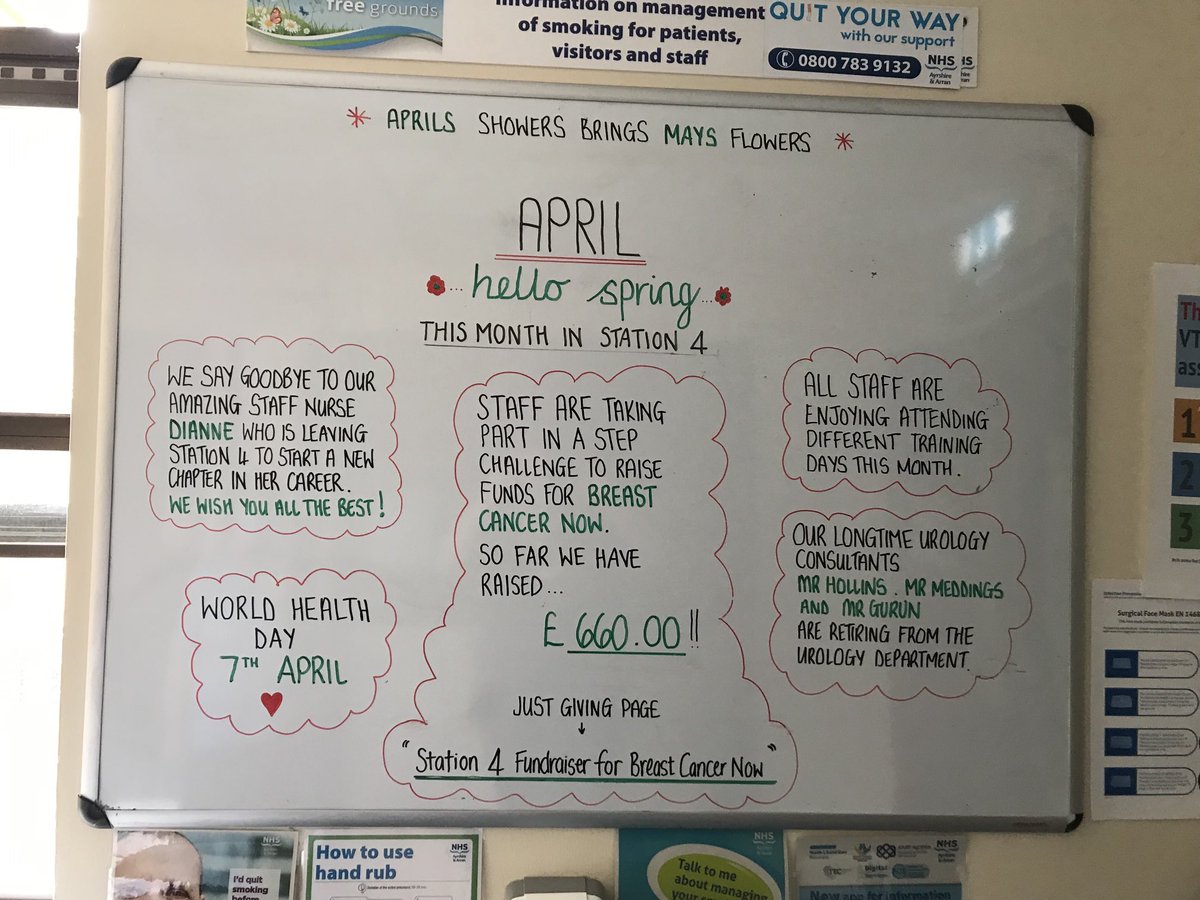 free grounds
information on management
of smoking for patients,
visitors and staff
QUIT YOUR WAY
with our support
0800 783 9132
NHS
Ayrshire
& Arran
APRILS SHOWERS BRINGS MAYS FLOWERS
APRIL
hello spring
THIS MONTH IN STATION 4
WE SAY GOODBYE TO OUR
AMAZING STAFF NURSE
DIANNE WHO IS LEAVING
STATION 4 TO START A NEW
CHAPTER IN HER CAREER.
WE WISH YOU ALL THE BEST!
WORLD HEALTH
DAY
7TH APRIL
STAFF ARE TAKING
PART IN A STEP
CHALLENGE TO RAISE
FUNDS FOR BREAST
CANCER NOW.
SO FAR WE HAVE
RAISED...
£660.00!!
JUST GIVING PAGE
"Station 4 Fundraiser for Breast Cancer Now"
ALL STAFF ARE
ENJOYING ATTENDING
DIFFERENT TRAINING
DAYS THIS MONTH.
OUR LONGTIME UROLOGY
CONSULTANTS
MR HOLLINS. MR MEDDINGS
AND MR GURUN
ARE RETIRING FROM THE
UROLOGY DEPARTMENT.
Th
VT
ass
1
2
3
Surgical Face Mask EN 1468
NHS
I'd quit
smoking
before
How to use
hand rub
NHS
Ayrshire
& Arran
NHS
Talk to me
about managing
NHS
New app for information